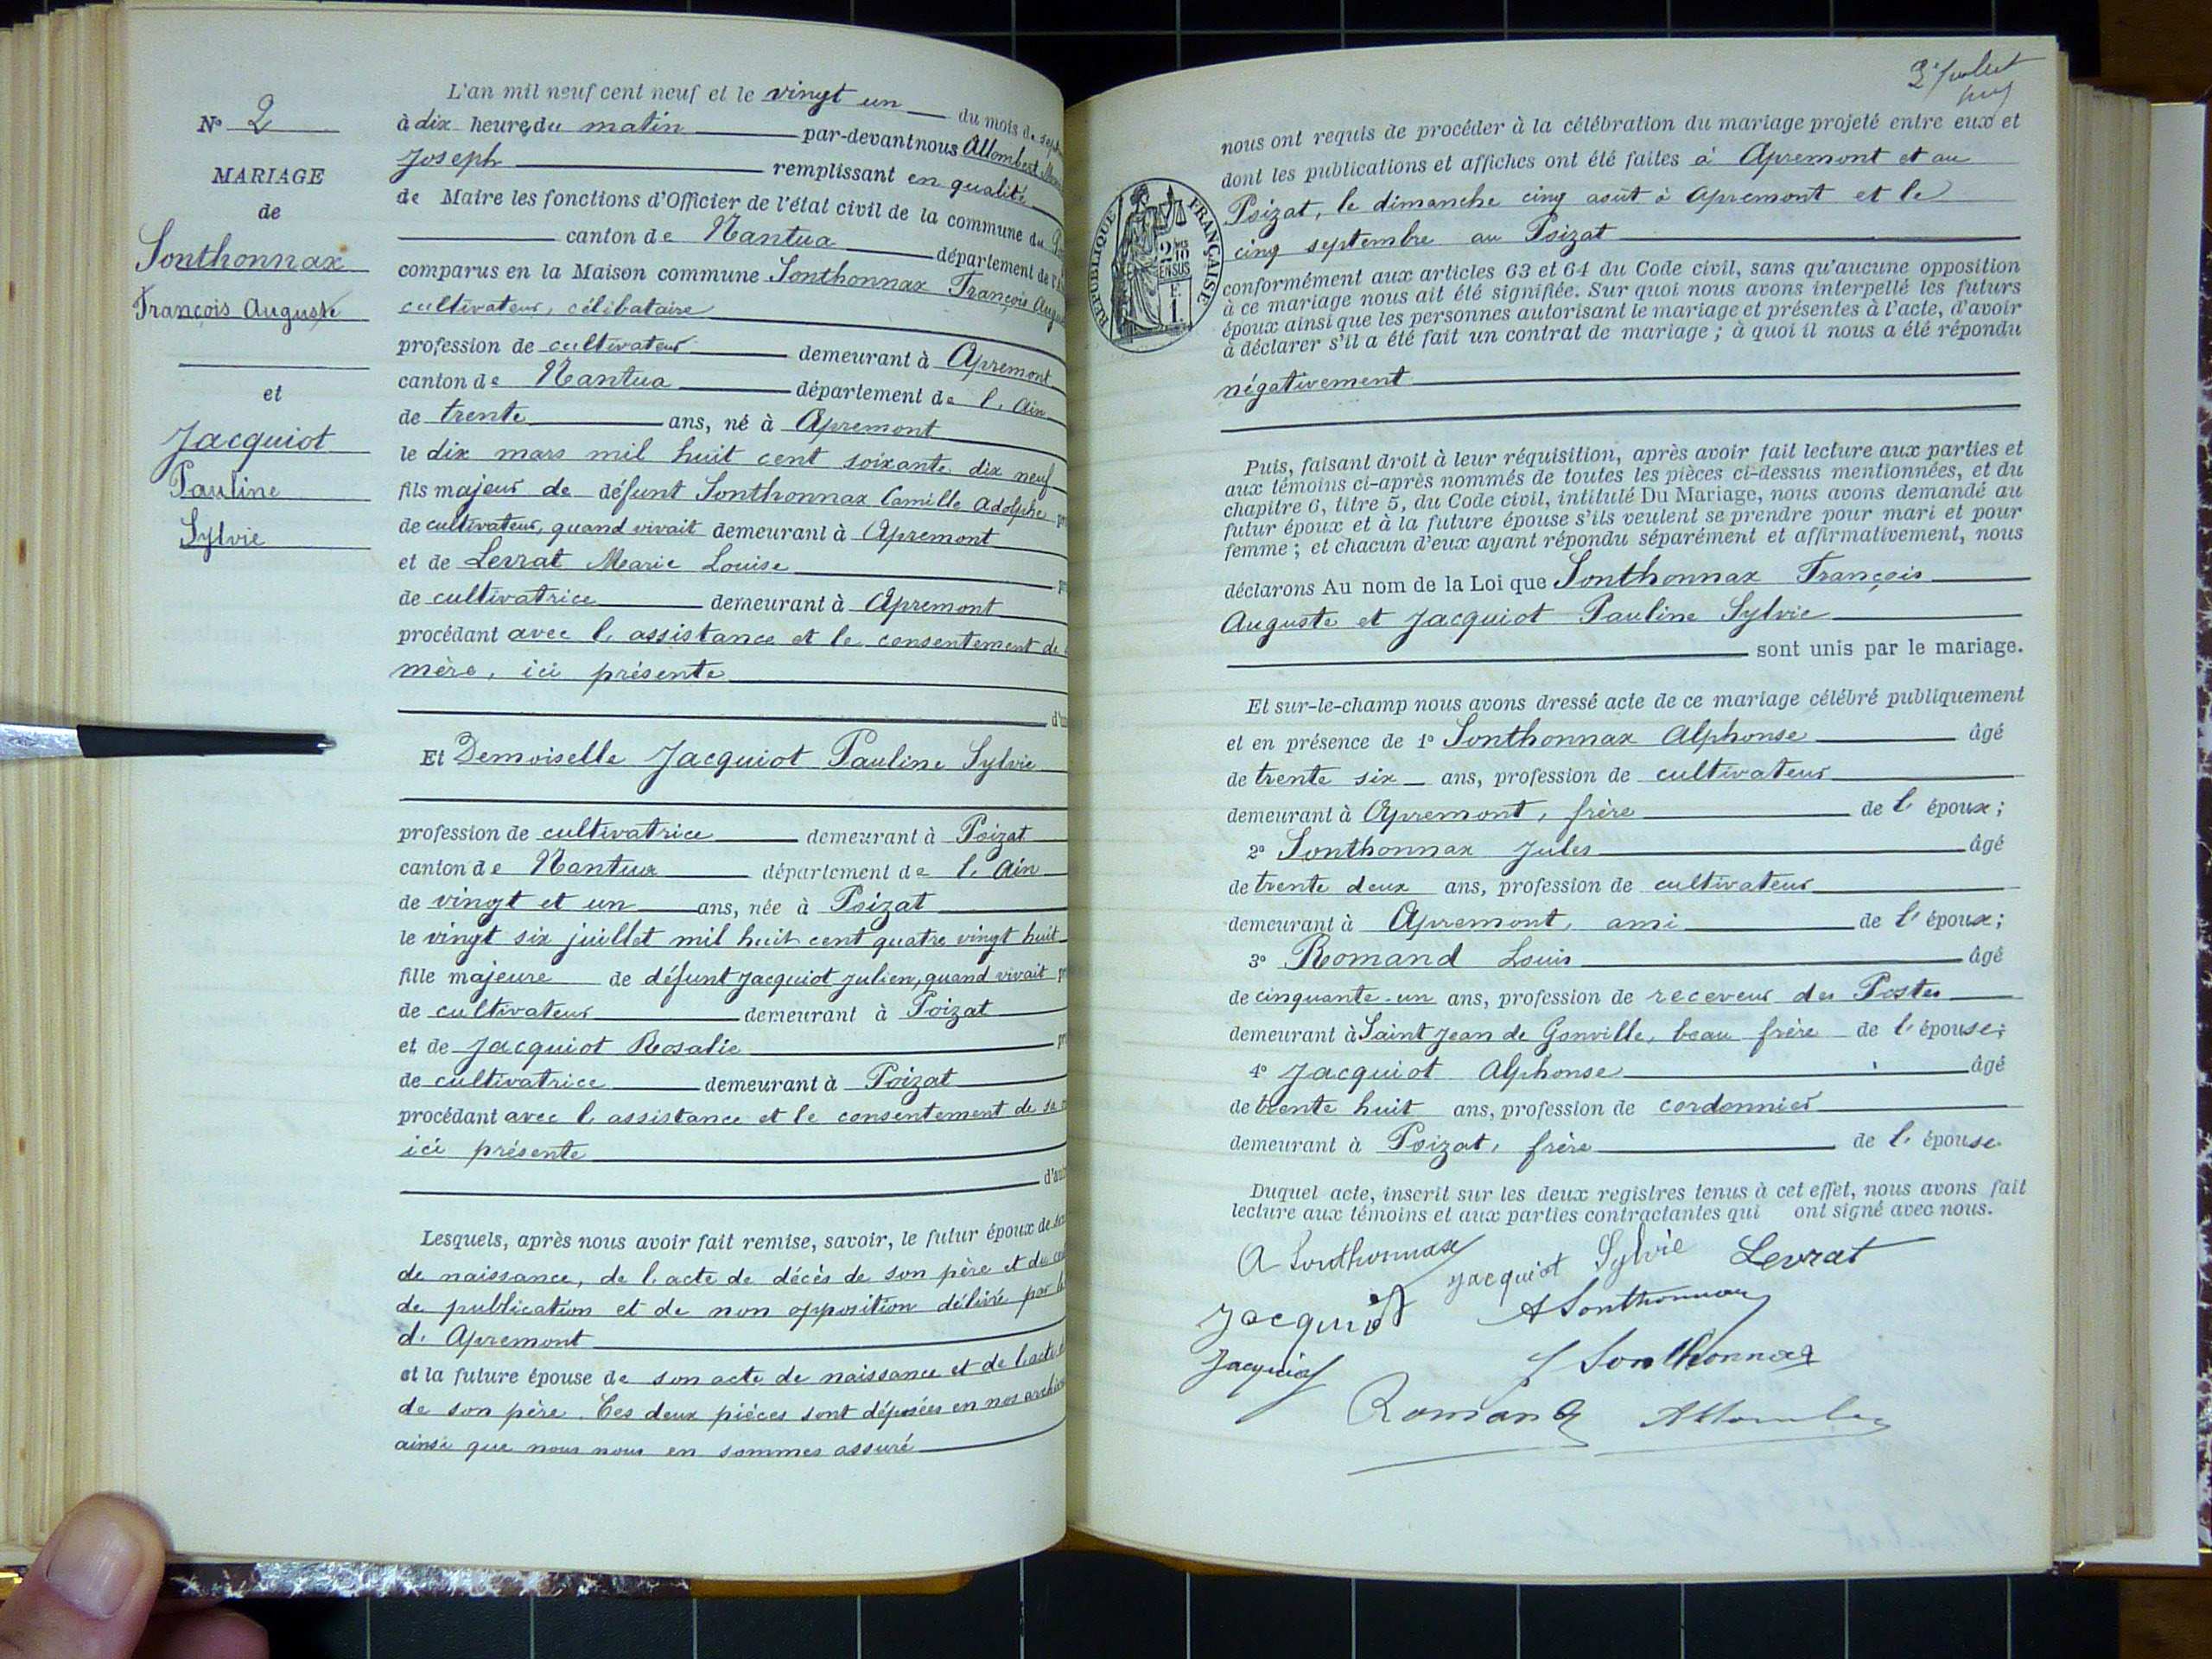 N° 2
MARIAGE
de
Sonthonnax
François Auguste
et
Jacquiot
Pauline
Sylvie
L'an mil neuf cent neuf et le vingt un du mois de sept
à dix heures du matin par-devant nous Allombert
Joseph remplissant en qualité
de Maire les fonctions d'Officier de l'état civil de la commune du
canton de Nantua département de l'
comparus en la Maison commune Sonthonnax François Aug
cultivateur, célibataire
profession de cultivateur demeurant à Apremont
canton de Nantua département de l'Ain
de trente ans, né à Apremont
le dix mars mil huit cent soixante dix neuf
fils majeur de défunt Sonthonnax Camille Adolphe
de cultivateur, quand vivait demeurant à Apremont
et de Levrat Marie Louise
de cultivatrice demeurant à Apremont
procédant avec l'assistance et le consentement de
mère, ici présente
d'u
Et Demoiselle Jacquiot Pauline Sylvie
profession de cultivatrice demeurant à Poizat
canton de Nantua département de l'Ain
de vingt et un ans, née à Poizat
le vingt six juillet mil huit cent quatre vingt huit
fille majeure de défunt Jacquiot Julien, quand vivait
de cultivateur demeurant à Poizat
et de Jacquiot Rosalie
de cultivatrice demeurant à Poizat
procédant avec l'assistance et le consentement de sa
ici présente
d'au
Lesquels, après nous avoir fait remise, savoir, le futur époux de son
de naissance, de l'acte de décès de son père et du
de publication et de non opposition délivré par
d'Apremont
et la future épouse de son acte de naissance et de l'acte
de son père. Ces deux pièces sont déposées en nos archi
ainsi que nous nous en sommes assuré
2e feuillet
nous ont requis de procéder à la célébration du mariage projeté entre eux et
dont les publications et affiches ont été faites à Apremont et au
Poizat, le dimanche cinq août à Apremont et le
cinq septembre au Poizat
RÉPUBLIQUE FRANÇAISE
2/10
EN SUS
conformément aux articles 63 et 64 du Code civil, sans qu'aucune opposition
à ce mariage nous ait été signifiée. Sur quoi nous avons interpellé les futurs
époux ainsi que les personnes autorisant le mariage et présentes à l'acte, d'avoir
à déclarer s'il a été fait un contrat de mariage ; à quoi il nous a été répondu
négativement
Puis, faisant droit à leur réquisition, après avoir fait lecture aux parties et
aux témoins ci-après nommés de toutes les pièces ci-dessus mentionnées, et du
chapitre 6, titre 5, du Code civil, intitulé Du Mariage, nous avons demandé au
futur époux et à la future épouse s'ils veulent se prendre pour mari et pour
femme ; et chacun d'eux ayant répondu séparément et affirmativement, nous
déclarons Au nom de la Loi que Sonthonnax François
Auguste et Jacquiot Pauline Sylvie
sont unis par le mariage.
Et sur-le-champ nous avons dressé acte de ce mariage célébré publiquement
et en présence de 1° Sonthonnax Alphonse âgé
de trente six ans, profession de cultivateur
demeurant à Apremont, frère de l'époux ;
2° Sonthonnax Jules âgé
de trente deux ans, profession de cultivateur
demeurant à Apremont, ami de l'époux ;
3° Romand Louis âgé
de cinquante-un ans, profession de receveur des Postes
demeurant à Saint Jean de Gonville, beau frère de l'épouse ;
4° Jacquiot Alphonse âgé
de trente huit ans, profession de cordonnier
demeurant à Poizat, frère de l'épouse
Duquel acte, inscrit sur les deux registres tenus à cet effet, nous avons fait
lecture aux témoins et aux parties contractantes qui ont signé avec nous.
A Sonthonnax Jacquiot Sylvie Levrat
Jacquiot A Sonthonnax
Jacquiot J Sonthonnax
Romand